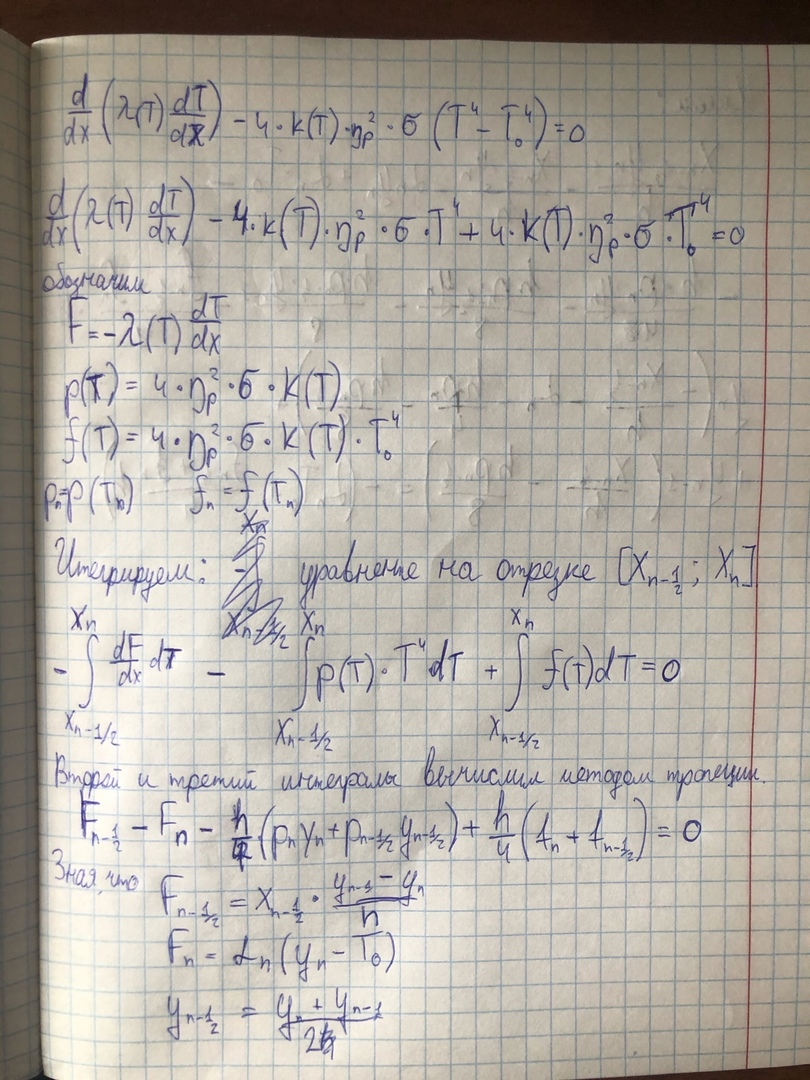 d/dx (λ(T) dT/dx) - 4·k(T)·n_p²·σ (T⁴ - T₀⁴) = 0
d/dx (λ(T) dT/dx) - 4·k(T)·n_p²·σ·T⁴ + 4·k(T)·n_p²·σ·T₀⁴ = 0
обозначим
F = -λ(T) dT/dx
p(T) = 4·n_p²·σ·k(T)
f(T) = 4·n_p²·σ·k(T)·T₀⁴
p_n = p(T_n) f_n = f(T_n)
Интегрируем: уравнение на отрезке [X_{n-1/2}; X_n]
- ∫_{X_{n-1/2}}^{X_n} dF/dx dT - ∫_{X_{n-1/2}}^{X_n} p(T)·T⁴ dT + ∫_{X_{n-1/2}}^{X_n} f(T)dT = 0
Второй и третий интегралы вычислим методом трапеции.
F_{n-1/2} - F_n - h/4 (p_n y_n + p_{n-1/2} y_{n-1/2}) + h/4 (f_n + f_{n-1/2}) = 0
Зная, что
F_{n-1/2} = X_{n-1/2} · (y_{n-1} - y_n)/h
F_n = α_n (y_n - T₀)
y_{n-1/2} = (y_n + y_{n-1})/2